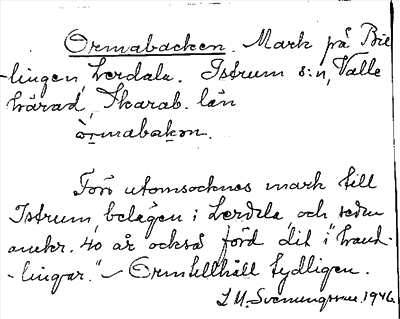 Ormabacken. Mark på Bie
-lingen, Lerdala. Istrum s:n, Valle
härad, Skarab. län
òrmabakən.
Förr utomsocknes mark till
Istrum, belägen i Lerdala, och sedan
omkr. 40 år också förd dit i "hand-
-lingar." – Ormtillhåll tydligen.
1946.